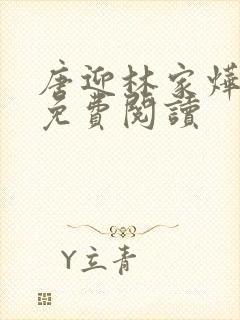 唐迎林家燁
免費閱讀
Y立青